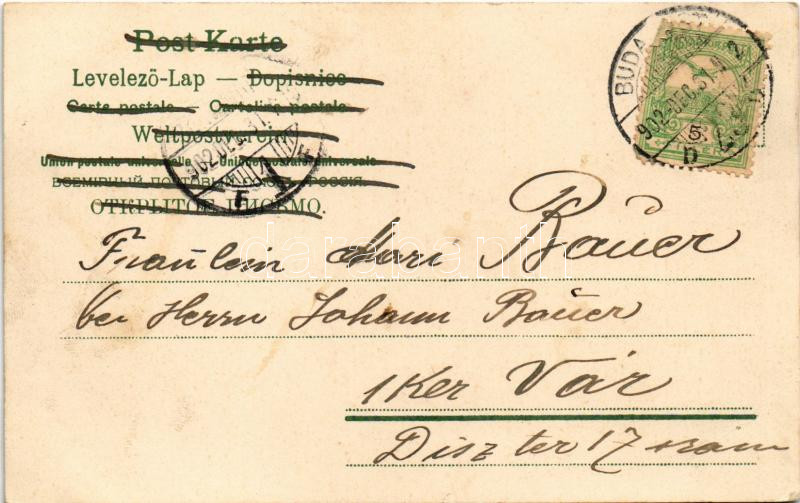 Post Karte
Levelező-Lap — Dopisnice
Carte postale — Cartolina postale
Weltpostverein
Union postale universelle Unione postale universale
ВСЕМІРНЫЙ ПОЧТОВЫЙ СОЮЗЪ РОССІЯ.
ОТКРЫТОЕ ПИСЬМО.
BUDA
902 DEC 31
Fraulein Mari Bauer
bei Herrn Johann Bauer
1 Ker Vár
Disz ter 17 szám
darabanth